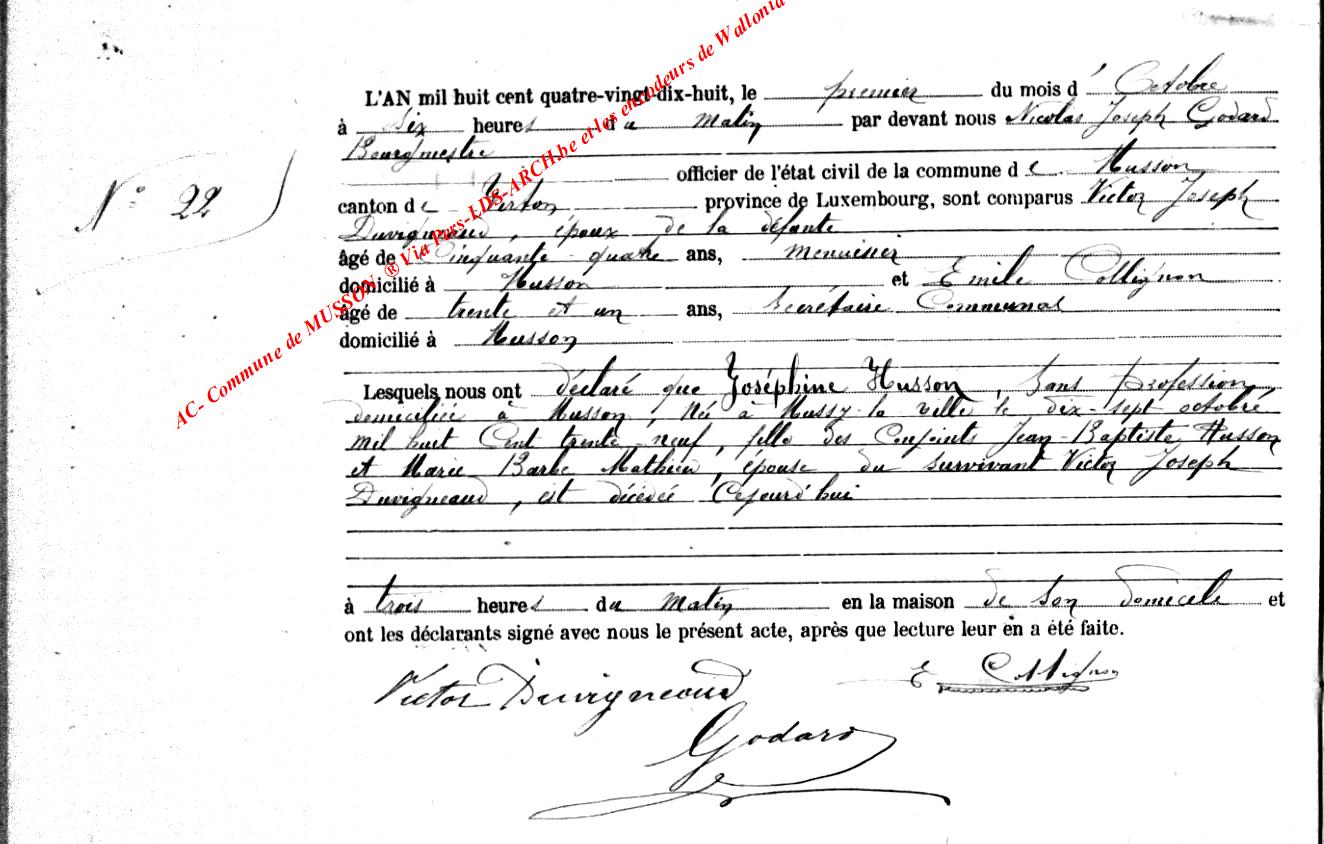 AC- Commune de MUSSON. ® Via Pers-LDS-ARCH.be et les encodeurs de Wallonia
N° 22
L'AN mil huit cent quatre-vingt-dix-huit, le premier du mois d' Octobre
à six heures du Matin par devant nous Nicolas Joseph Godard
Bourgmestre
officier de l'état civil de la commune de Musson
canton de Virton province de Luxembourg, sont comparus Victor Joseph
Duvigneaud, époux de la défunte
âgé de Cinquante-quatre ans, menuisier
domicilié à Musson et Emile Collignon
âgé de trente et un ans, Secrétaire Communal
domicilié à Musson
Lesquels nous ont déclaré que Joséphine Husson, Sans profession,
domiciliée à Musson, Née à Mussy-la-ville le dix-sept octobre
mil huit Cent trente-neuf, fille des Conjoints Jean-Baptiste Husson
et Marie Barbe Mathieu, épouse du Survivant Victor Joseph
Duvigneaud, est décédée Cejourd'hui
à trois heures du Matin en la maison de Son domicile et
ont les déclarants signé avec nous le présent acte, après que lecture leur en a été faite.
Victor Duvigneaud E Collignon
Godard